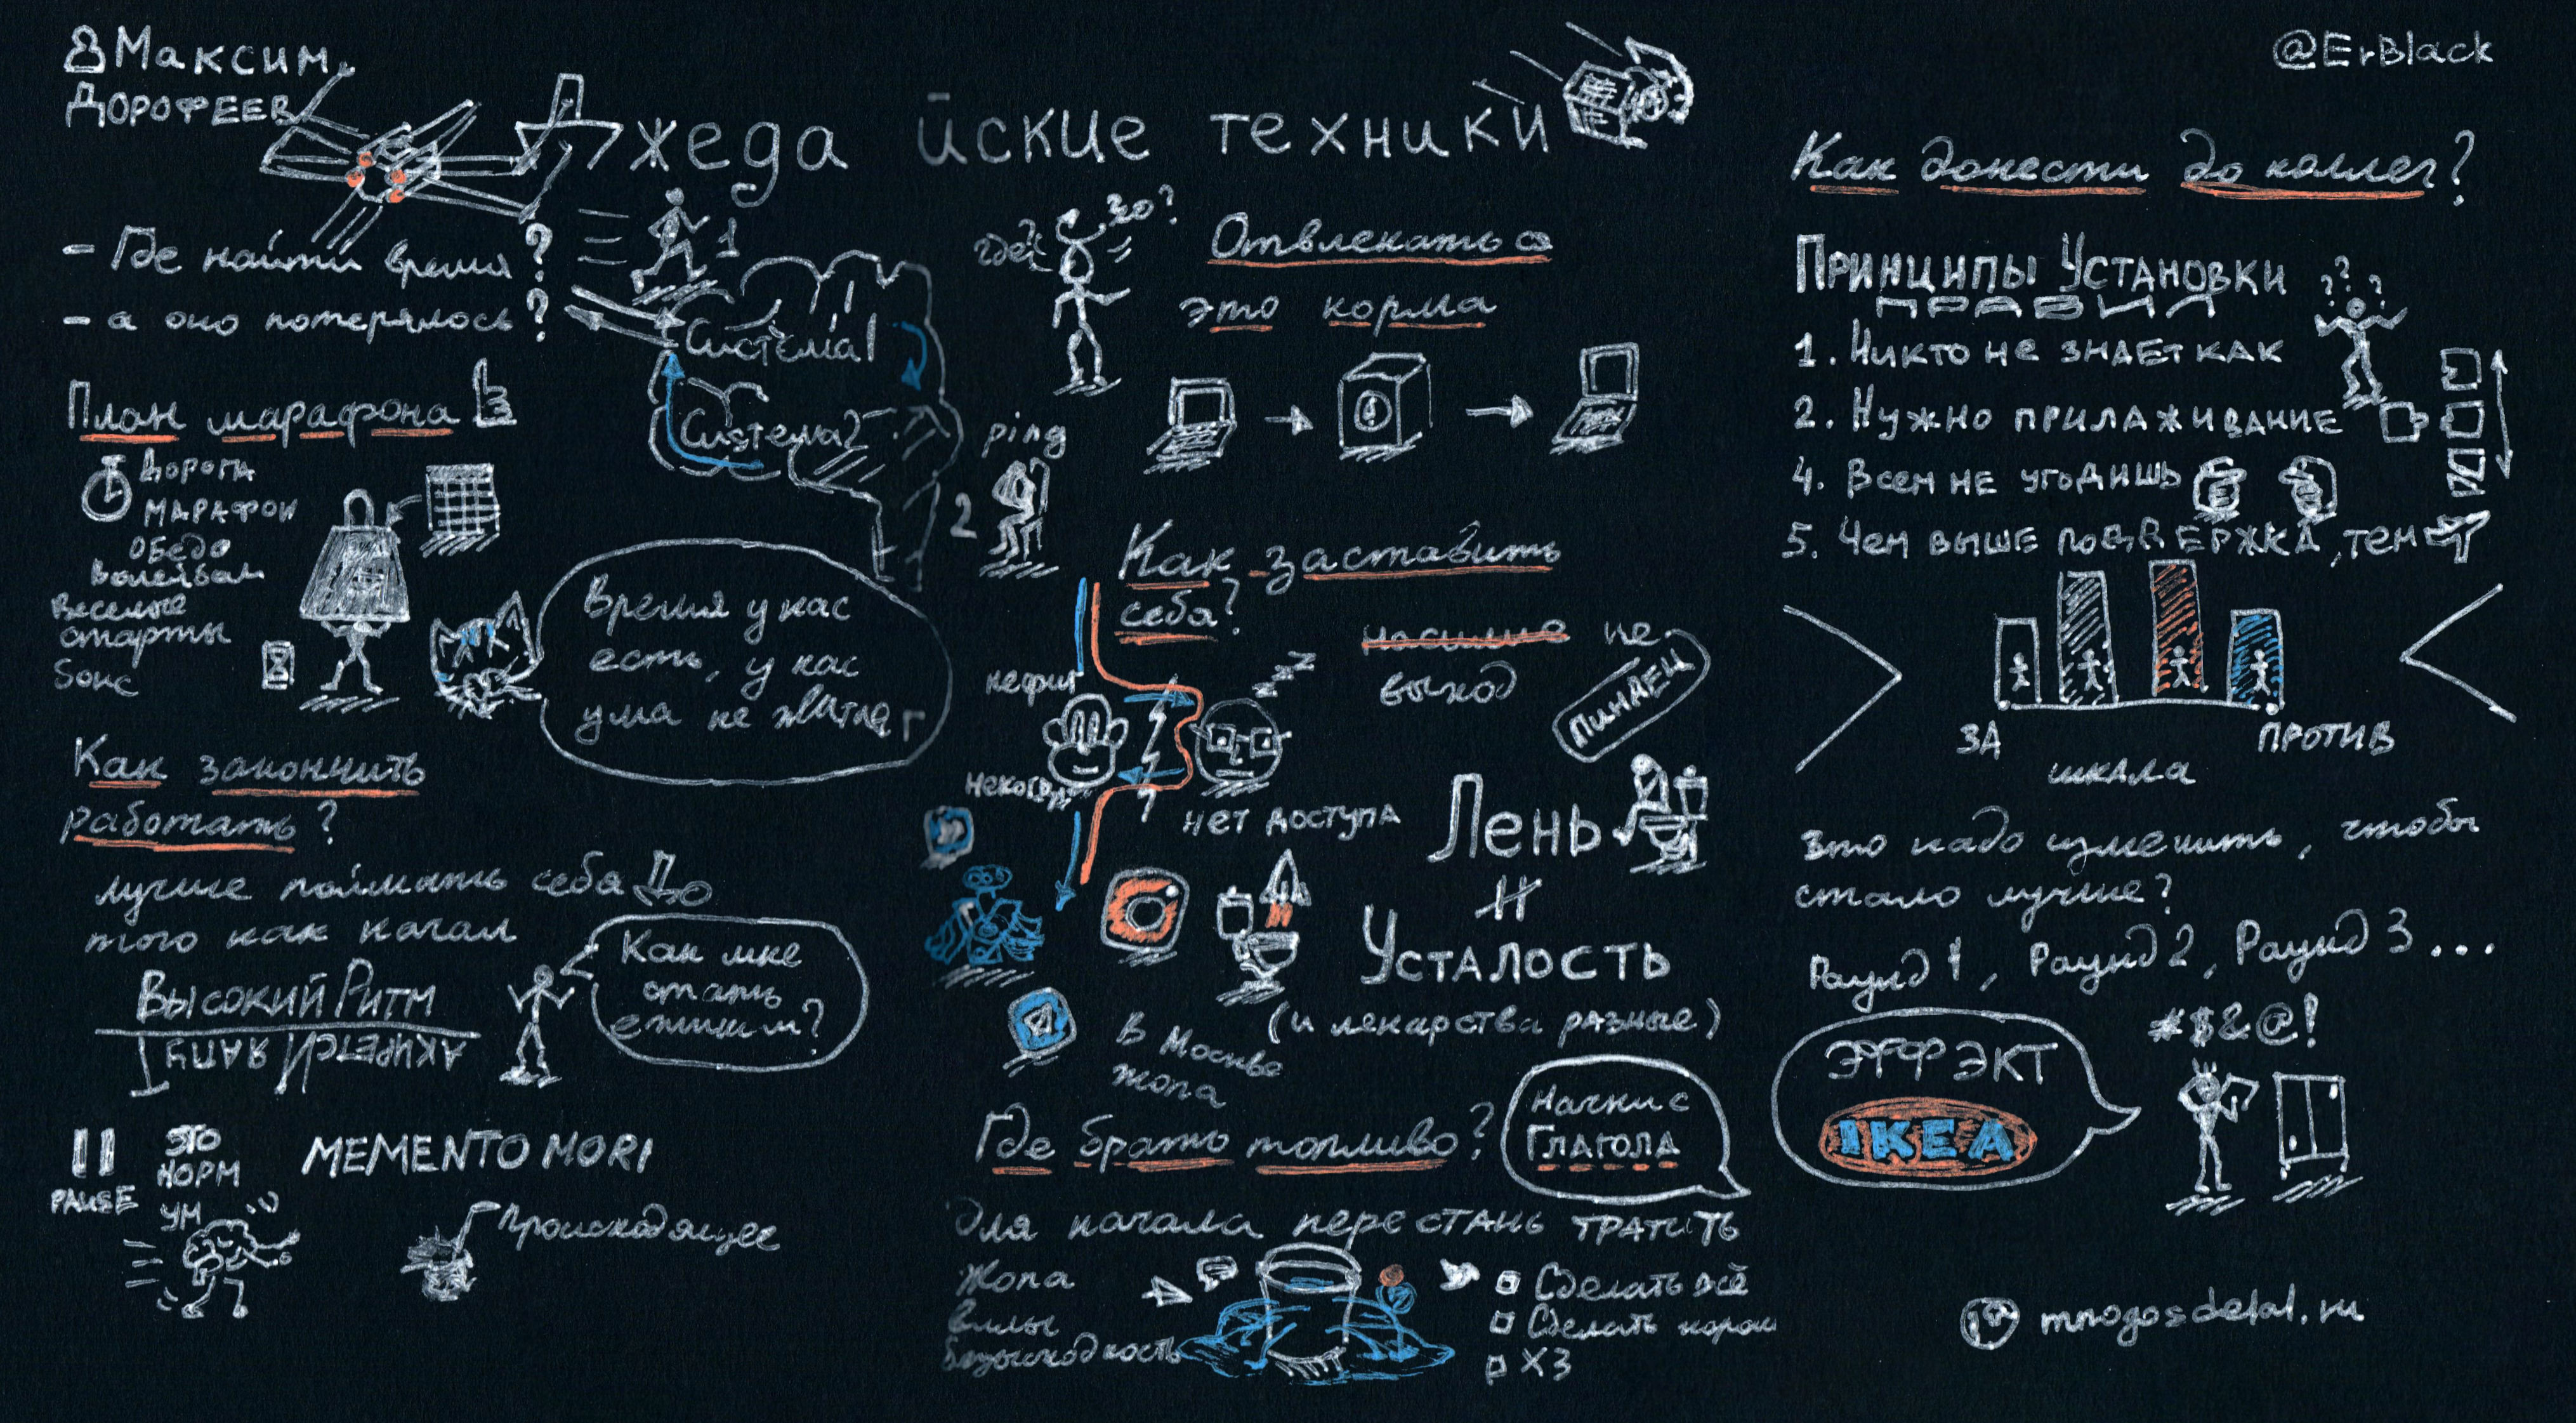 Максим
Дорофеев
Джедайские техники
@ErBlack
- Где найти время?
- а оно потерялось?
1
Система 1
Система 2
2
План марафона
Дорога
Марафон
Обед
Волейбол
Веселые
старты
Sонс
Время у нас
есть, у нас
ума не хватает
Как закончить
работать?
лучше поймать себя До
того как начал
Высокий Ритм
Как мне
стать
ежиком?
PAUSE
Это
норм
ум
MEMENTO MORI
Происходящее
где?
зо?
Отвлекаться
это норма
ping
Как заставить
себя?
насилие не
выход
нефиг
некогда
zzz
нет доступа
Пиндец
Лень
≠
Усталость
(и лекарства разные)
В Москве
жопа
Где брать топливо?
Начни с
Глагола
Для начала перестань тратить
Жопа
вилы
безысходность
Сделать всё
Сделать хорош
ХЗ
Как донести до коллег?
Принципы Установки
правил
???
1. Никто не знает как
2. Нужно прилаживание
4. Всем не угодишь
5. Чем выше поддержка, тем
ЗА
ПРОТИВ
шкала
Что надо изменить, чтобы
стало лучше?
Раунд 1, Раунд 2, Раунд 3...
Эффэкт
IKEA
#$&@!
mnogosdelal.ru